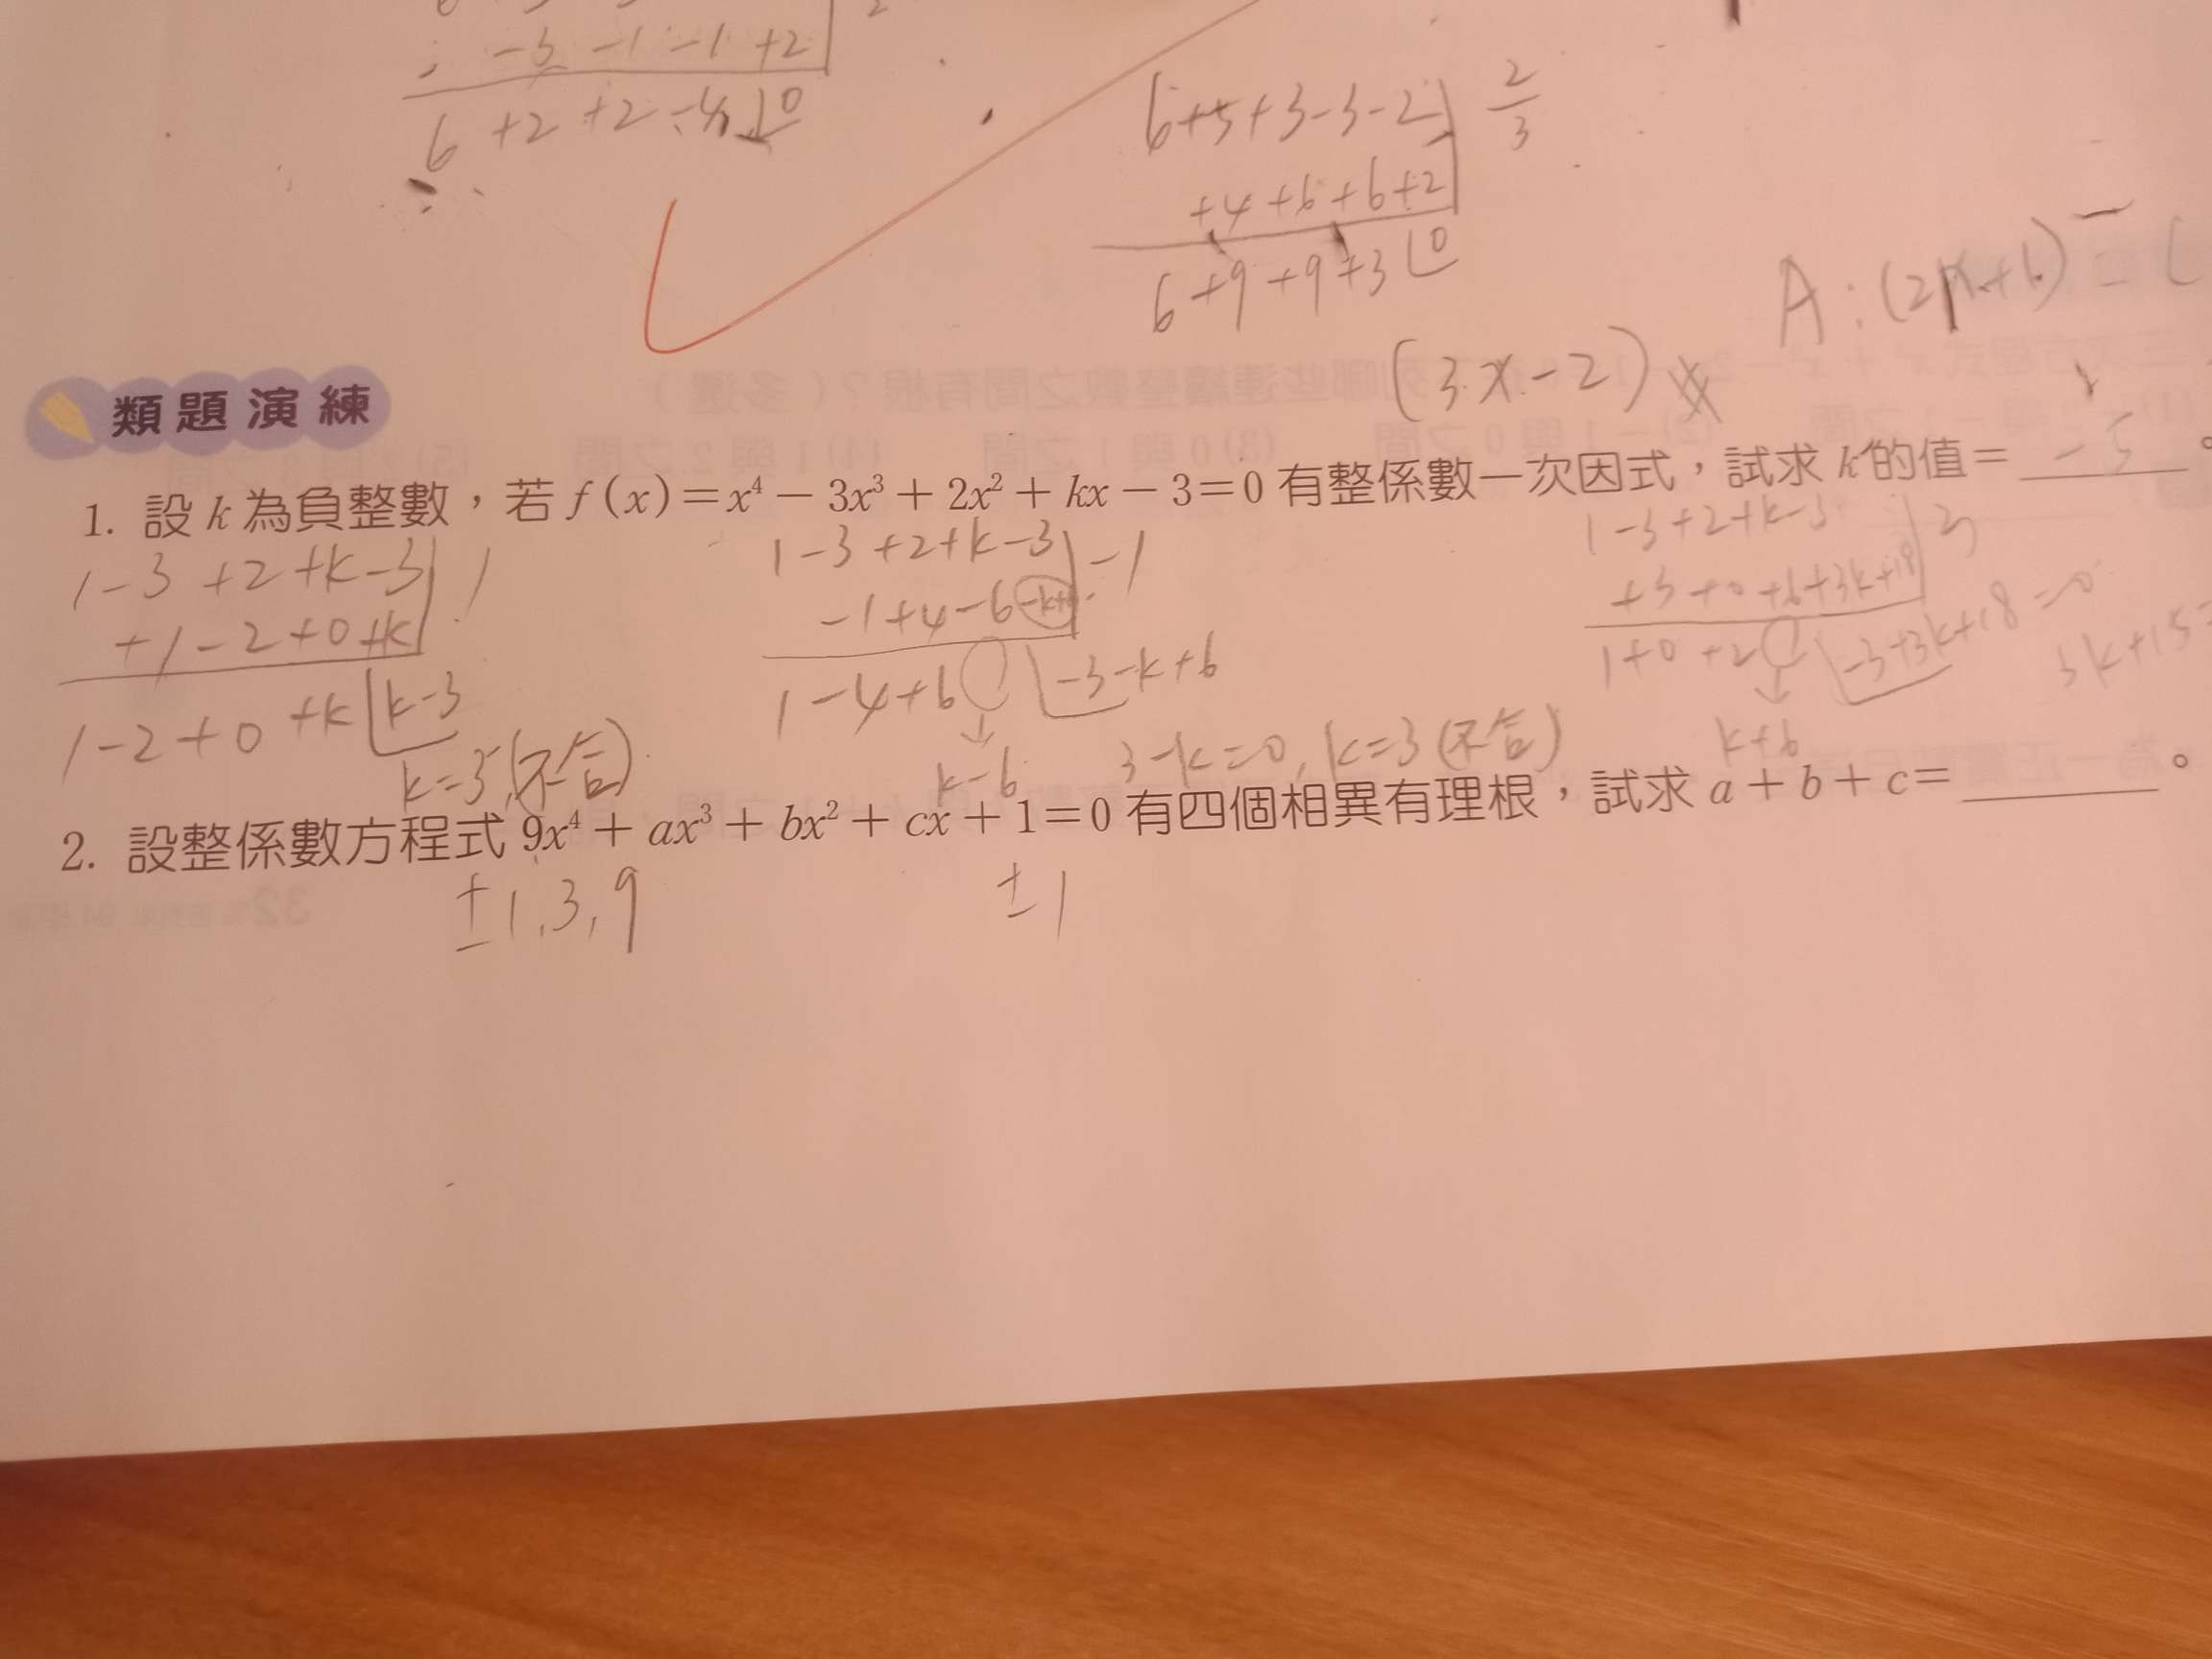 -3 -1 -1 +2
6 +2 +2 -4 0
6+5+3-3-2 2/3
+4+6+6+2
6+9+9+3 0
(3x-2)
類題演練
1. 設 k 為負整數，若 f(x)=x⁴-3x³+2x²+kx-3=0 有整係數一次因式，試求 k 的值= -5 。
1-3+2+k-3 1
+1-2+0+k
1-2+0+k k-3
k=3,(不合)
1-3+2+k-3 -1
-1+4-6
1-4+6 -3-k+6
k-6 3-k=0, k=3(不合)
1-3+2+k-3 3
+3+0+6+3k+18
1+0+2 -3+3k+18=0
k+6 3k+15=
2. 設整係數方程式 9x⁴+ax³+bx²+cx+1=0 有四個相異有理根，試求 a+b+c= 。
±1,3,9 ±1